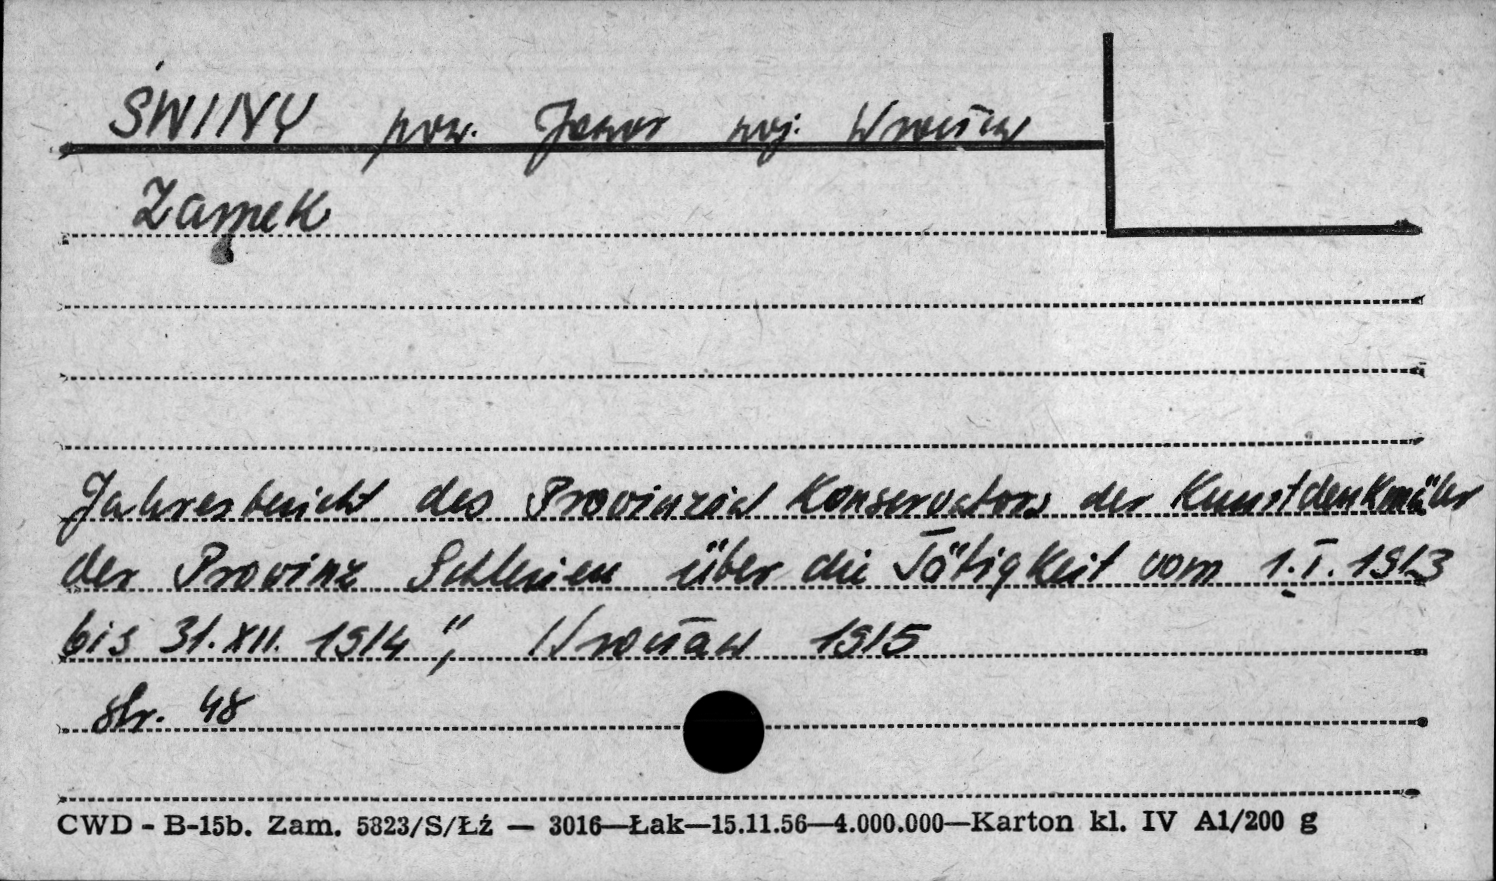 ŚWINY pow. Jawor woj. Wrocław
Zamek
Jahresbericht des Provinzial Konservators der Kunstdenkmäler
der Provinz Schlesien über die Tätigkeit vom 1.I.1913
bis 31.XII. 1914", Wrocław 1915
str. 48
CWD - B-15b. Zam. 5823/S/Łż — 3016—Łak—15.11.56—4.000.000—Karton kl. IV A1/200 g